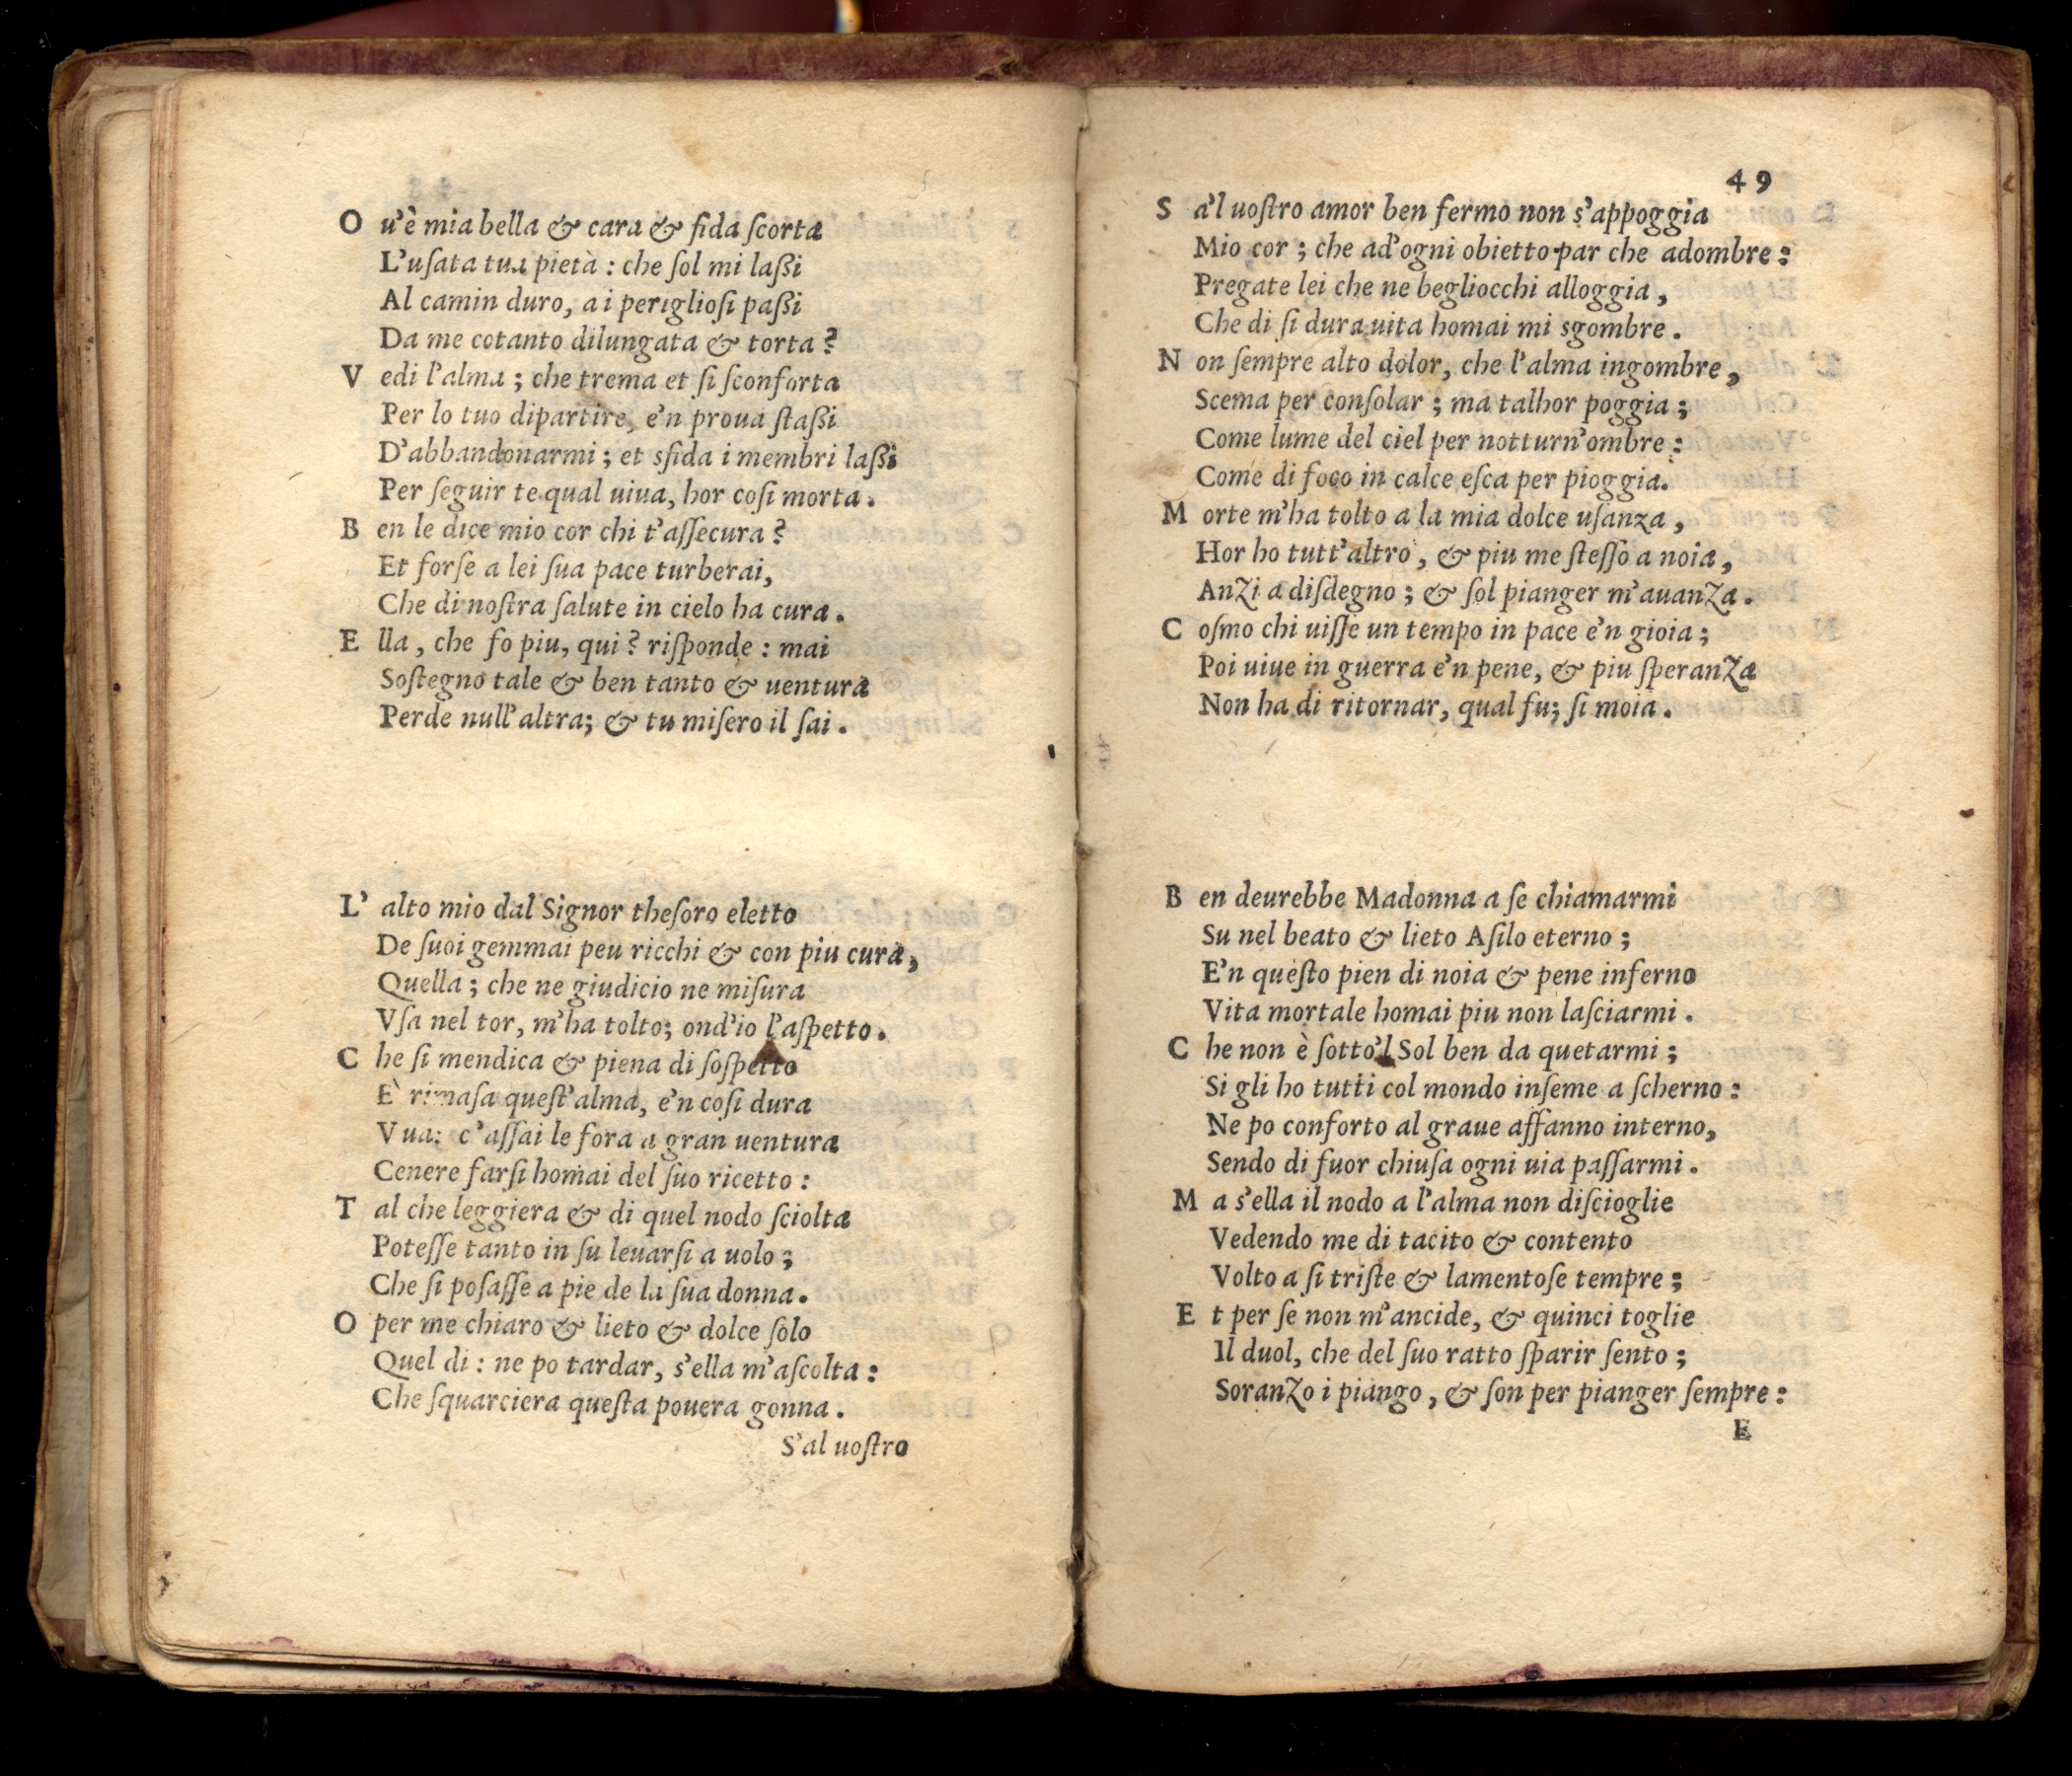 O u'è mia bella & cara & fida ſcorta
L'uſata tua pietà : che ſol mi laßi
Al camin duro, a i periglioſi paßi
Da me cotanto dilungata & torta ?
V edi l'alma ; che trema et ſi ſconforta
Per lo tuo dipartire, e'n proua ſtaßi
D'abbandonarmi ; et sfida i membri laßi
Per ſeguir te qual uiua, hor coſi morta .
B en le dice mio cor chi t'aſſecura ?
Et forſe a lei ſua pace turberai,
Che di noſtra ſalute in cielo ha cura .
E lla , che fo piu, qui ? riſponde : mai
Soſtegno tale & ben tanto & uentura
Perde null'altra; & tu miſero il ſai .
L' alto mio dal Signor theſoro eletto
De ſuoi gemmai peu ricchi & con piu cura,
Quella ; che ne giudicio ne miſura
Vſa nel tor, m'ha tolto; ond'io l'aſpetto .
C he ſi mendica & piena di ſoſpetto
È rimaſa queſt'alma, e'n coſi dura
V ua: c'aſſai le fora a gran uentura
Cenere farſi homai del ſuo ricetto :
T al che leggiera & di quel nodo ſciolta
Poteſſe tanto in ſu leuarſi a uolo ;
Che ſi poſaſſe a pie de la ſua donna .
O per me chiaro & lieto & dolce ſolo
Quel di : ne po tardar, s'ella m'aſcolta :
Che ſquarciera queſta pouera gonna .
S'al uoſtro
49
S a'l uoſtro amor ben fermo non s'appoggia
Mio cor ; che ad'ogni obietto par che adombre :
Pregate lei che ne begliocchi alloggia ,
Che di ſi dura uita homai mi sgombre .
N on ſempre alto dolor, che l'alma ingombre ,
Scema per conſolar ; ma talhor poggia ;
Come lume del ciel per notturn'ombre :
Come di foco in calce eſca per pioggia.
M orte m'ha tolto a la mia dolce uſanza ,
Hor ho tutt'altro , & piu me ſteſſo a noia ,
Anzi a diſdegno ; & ſol pianger m'auanza .
C oſmo chi uiſſe un tempo in pace e'n gioia ;
Poi uiue in guerra e'n pene, & piu ſperanza
Non ha di ritornar, qual fu; ſi moia .
B en deurebbe Madonna a ſe chiamarmi
Su nel beato & lieto Aſilo eterno ;
E'n queſto pien di noia & pene inferno
Vita mortale homai piu non laſciarmi .
C he non è ſotto'l Sol ben da quetarmi ;
Si gli ho tutti col mondo inſeme a ſcherno :
Ne po conforto al graue affanno interno,
Sendo di fuor chiuſa ogni uia paſſarmi .
M a s'ella il nodo a l'alma non diſcioglie
Vedendo me di tacito & contento
Volto a ſi triſte & lamentoſe tempre ;
E t per ſe non m'ancide, & quinci toglie
Il duol, che del ſuo ratto ſparir ſento ;
Soranzo i piango , & ſon per pianger ſempre :
E